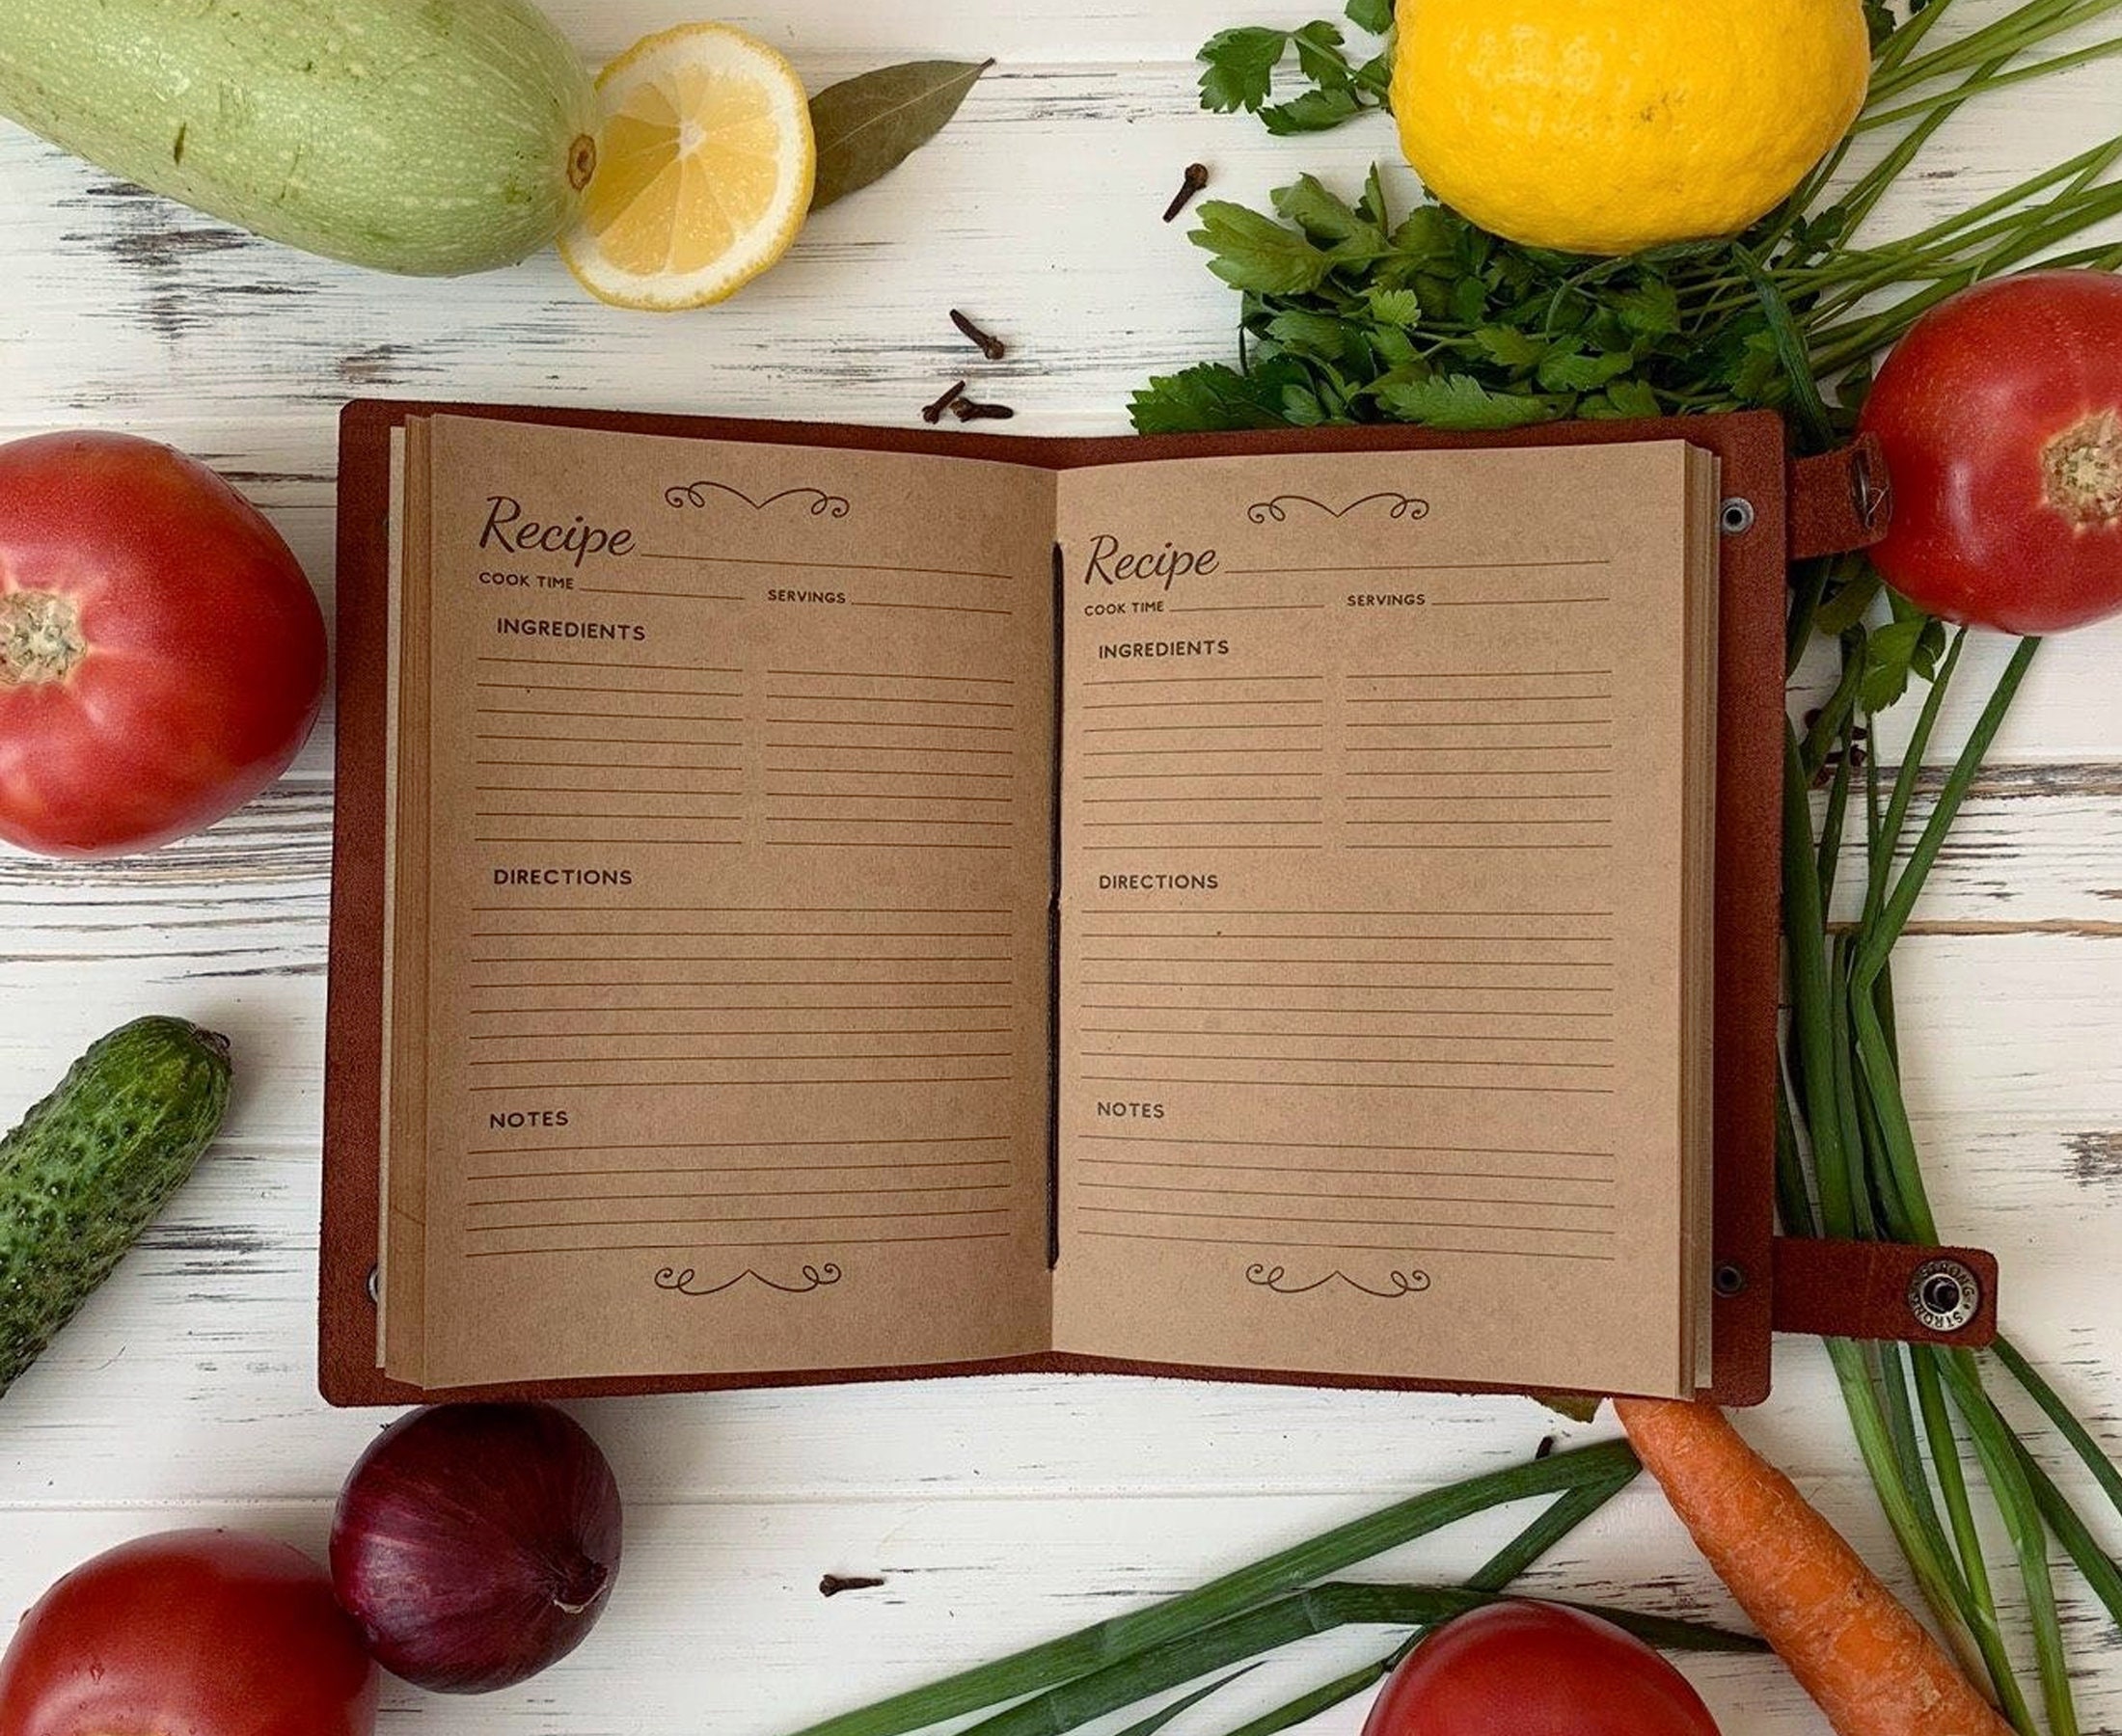 Recipe
COOK TIME SERVINGS
INGREDIENTS
DIRECTIONS
NOTES
Recipe
COOK TIME SERVINGS
INGREDIENTS
DIRECTIONS
NOTES
STRONG STRONG